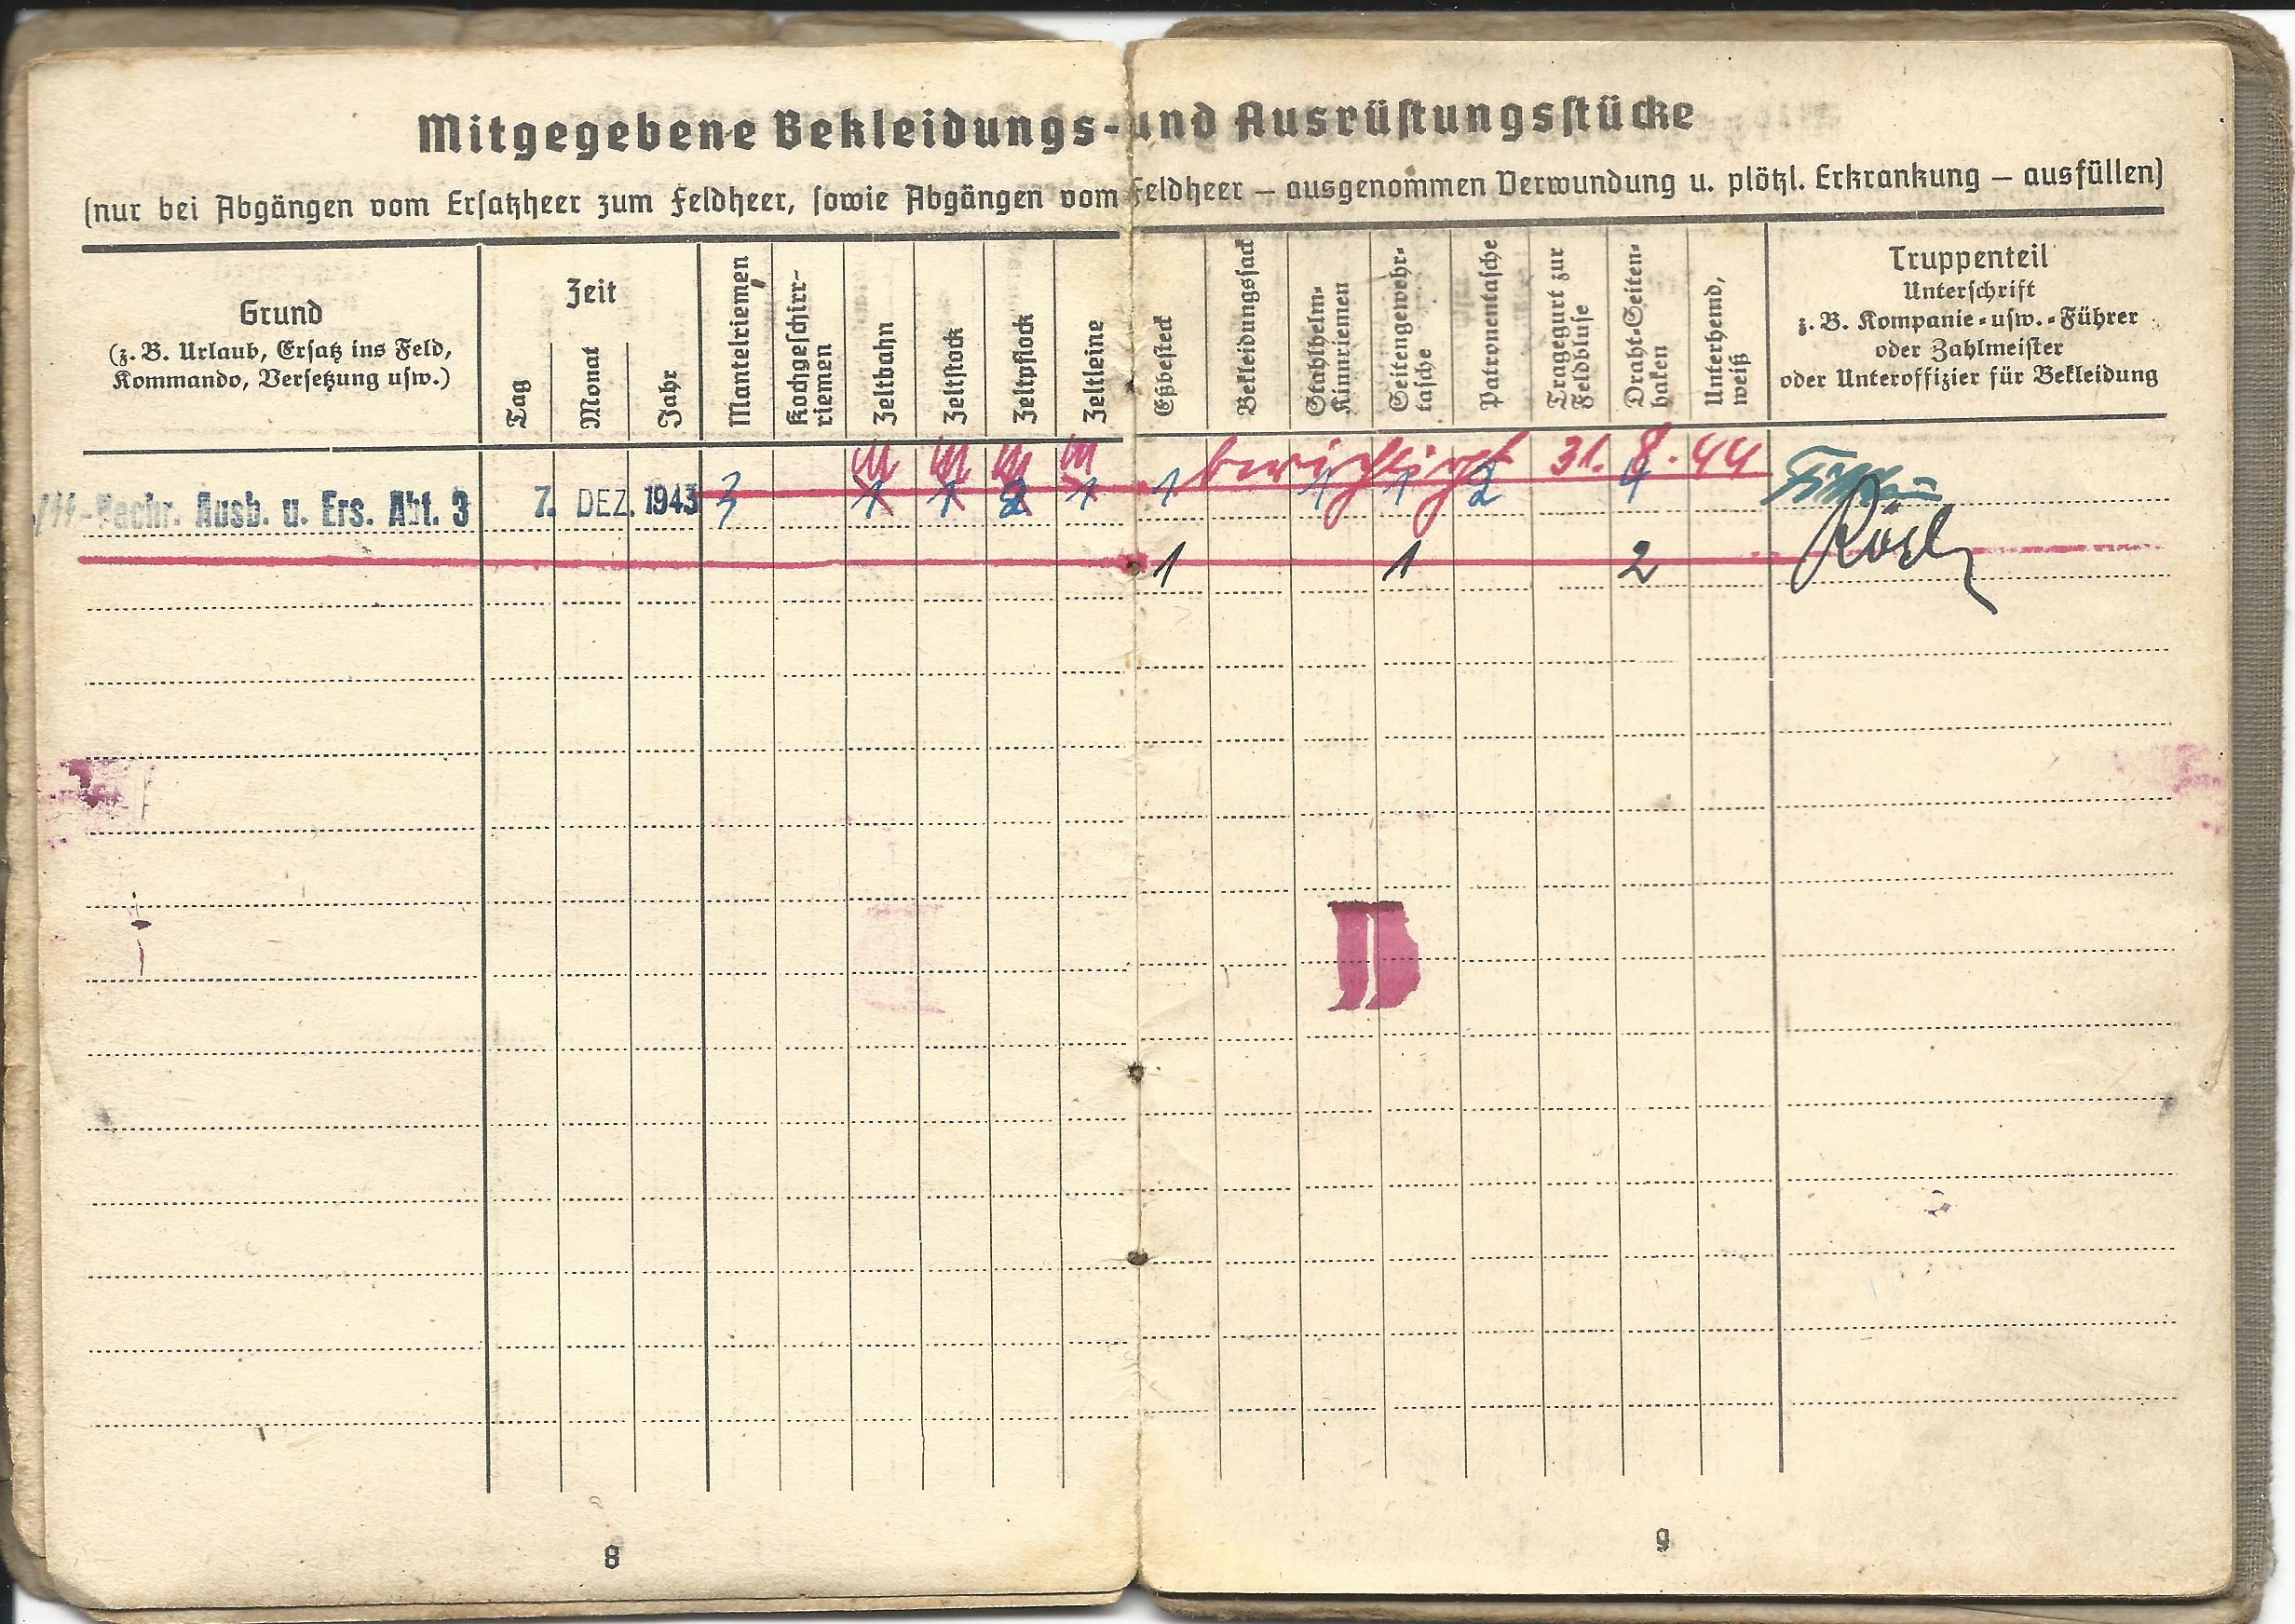 Mitgegebene Bekleidungs- und Ausrüstungsstücke
(nur bei Abgängen vom Ersatzheer zum Feldheer, sowie Abgängen vom Feldheer — ausgenommen Verwundung u. plötzl. Erkrankung — ausfüllen)
Grund
(z. B. Urlaub, Ersatz ins Feld,
Kommando, Versetzung usw.)
Zeit
Tag
Monat
Jahr
Mantelriemen
Kochgeschirr-
riemen
Zeltbahn
Zeltstock
Zeltpflock
Zeltleine
Eßbesteck
Bekleidungssack
Stahlhelm-
Kinnriemen
Seitengewehr-
tasche
Patronentasche
Tragegurt zur
Feldbluse
Draht-Seiten-
haken
Unterhemd,
weiß
Truppenteil
Unterschrift
z. B. Kompanie- usw. -Führer
oder Zahlmeister
oder Unteroffizier für Bekleidung
berichtigt 31. 8. 44
Nachr. Ausb. u. Ers. Abt. 3 7. DEZ. 1943 3 1 1 2 1 1 1 1 2 4
1 1 2
8
9